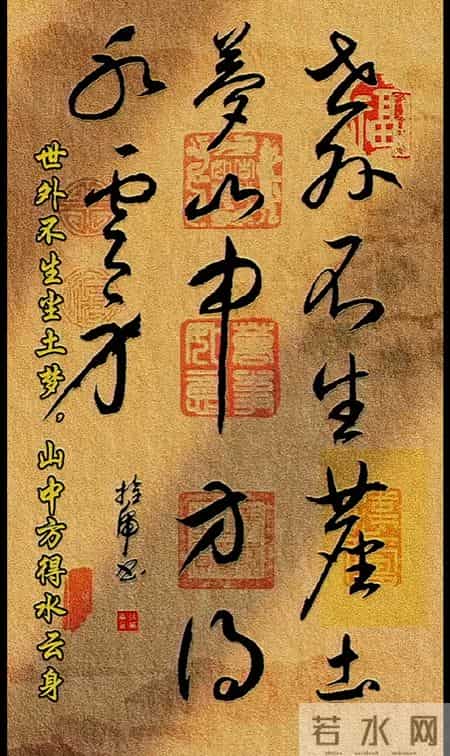 世外不生塵土
夢山中方得
水雲身
拾庸书
福
世外不生尘土梦，山中方得水云身
若水网